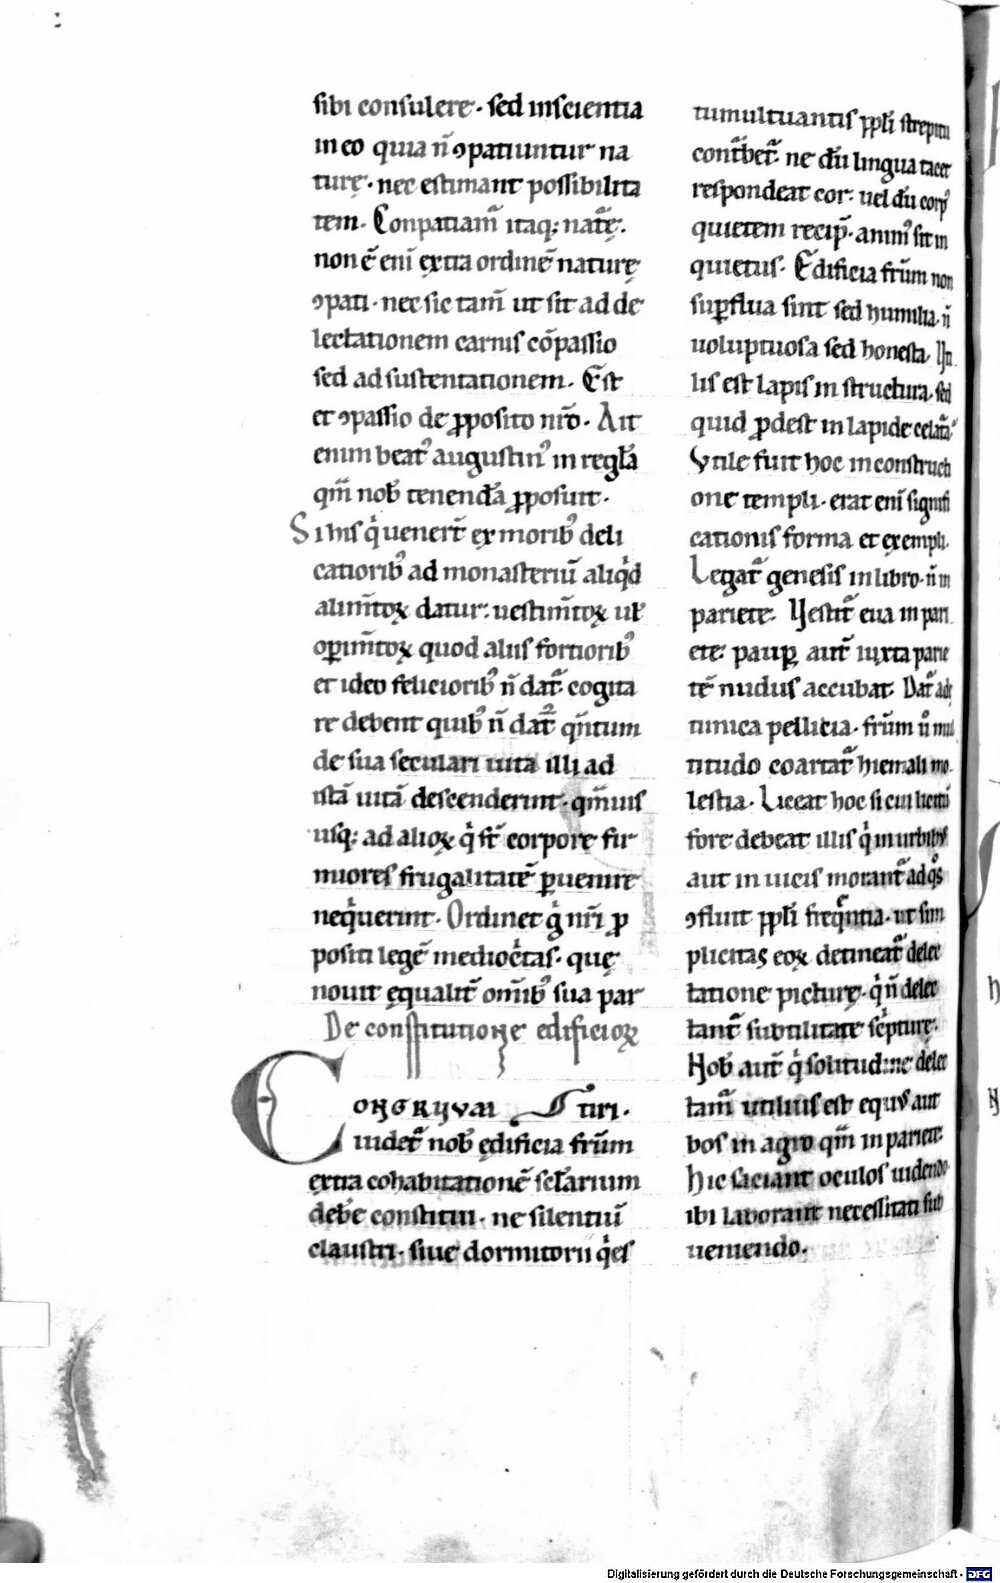 sibi consulere· sed inscientia
in eo quia n̄ ꝯpatiuntur na
turę· nec estimant possibilita
tem· Conpatiam̄ itaq; natᷓę·
non ē eni extra ordinē naturę
ꝯpati· nec sic tam̄ ut sit ad de
lectationem carnis cōpassio
sed ad sustentationem· Est
et ꝯpassio de ꝓposito nr̄o· Ait
enim beatꝰ augustinꝰ in regła
qm̄ nob̄ tenendā ꝓposuit·
Si his qͥ uenert̄ ex moribꝰ deli
catioribꝰ ad monasteriū aliqͥd
alim̄toꝝ datur: uestim̄toꝝ uł
oꝑim̄toꝝ quod aliis fortioribꝰ
et ideo felicioribꝰ n̄ datᷓ· cogita
re debent quibꝰ n̄ datᷓ qn̄tum
de sua seculari uita illi ad
istā uitā descenderint· qm̄uis
usq; ad alioꝝ qͥ st̄ corpore fir
miores frugalitatē ꝑuenire
neqͥuerint· Ordinet gͥ nr̄i ꝓ
positi legē medioc̄tas· quę
nouit ęqualit̄ om̄ibꝰ sua par
De constitutione edificioꝝ
CONGRUUM Stiri·
uidet᷒ nob̄ ędificia fr̄um
extra cohabitationē scłarium
deb̄e constitui· ne silentiū
claustri· siue dormitorii qͥes
tumultuantis ꝓpłi strepitu
cont̄bet᷒· ne dū lingua tacet
respondeat cor· uel dū corpꝰ
quietem recip̄· animꝰ sit in
quietus· Edificia fr̄um non
suꝑflua sint sed humilia· n̄
uoluptuosa sed honesta· Uti
lis est lapis in structura· sed
quid ꝓdest in lapide celatᷓa·
Vtile fuit hoc in constructi
one templi· erat eni signifi
cationis forma et exempli·
Legat᷒ genesis in libro· n̄ in
pariete· Uestit᷒ eua in pari
ete: pauꝑ aut̄ iuxta parie
tē nudus accubat· Dat᷒ adę
tunica pellicia· fr̄um u̾ mul
titudo coartat᷒ hiemali mo
lestia· Liceat hoc si cui licitū
fore debeat illis qͥ in urbibꝰ
aut in uicis morant᷒ ad qͦs
ꝯfluit ꝓpłi freqn̄tia· ut sim
plicitas eoꝝ detineat᷒ delec
tatione picturę· qͥ n̄ delec
tant᷒ subtilitate sc̄pturę·
Nob̄ aut̄ qͥ solitudine delec
tam᷒ utilius est equus aut
bos in agro qm̄ in pariete·
Hic saciant oculos uidendo
ibi laborant necessitati sub
ueniendo·
Digitalisierung gefördert durch die Deutsche Forschungsgemeinschaft - DFG